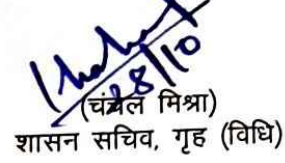 28/10
(चंचल मिश्रा)
शासन सचिव, गृह (विधि)